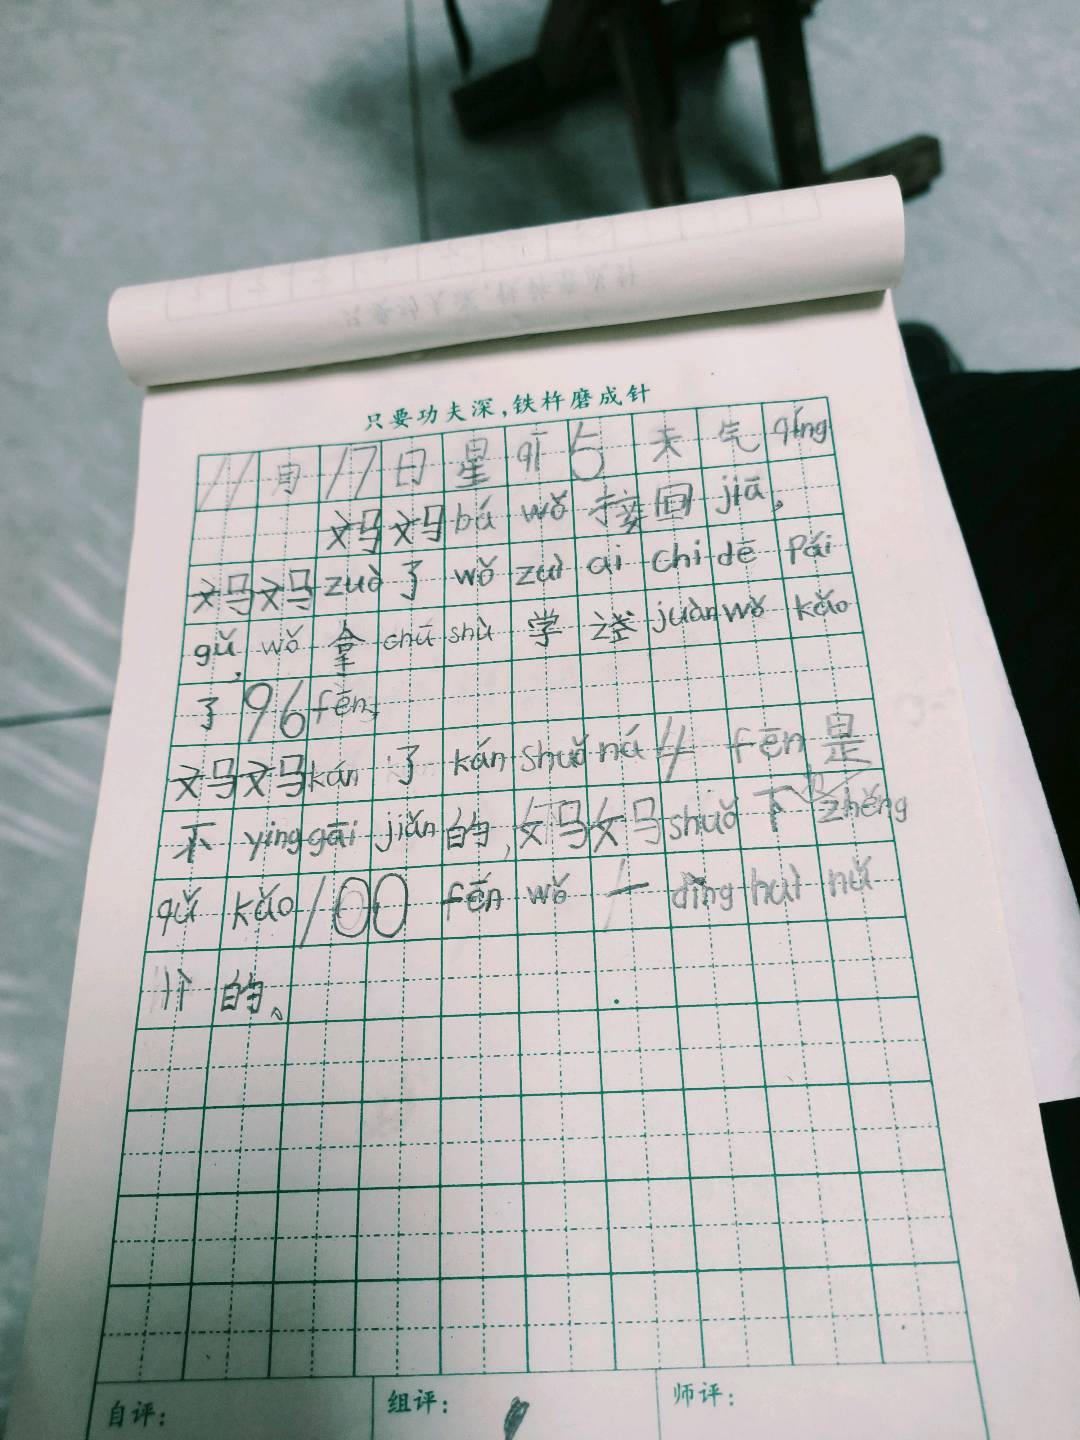 只要功夫深,铁杵磨成针
11月17日星qī5天气qíng
妈妈bá wǒ接回jiā,
妈妈zuò了wǒ zuì ai chi dē Pái
gǔ,wǒ拿chū shù学 juàn wǒ kǎo
了96fēn,
妈妈kán了kán shuǒ ná 4 fēn是
不yīng gāi jiǎn的,妈妈shuǒ下次zhěng
qǔ kǎo 100 fēn wǒ 一 dìng huì nǔ
 的。
自评:
组评:
师评: